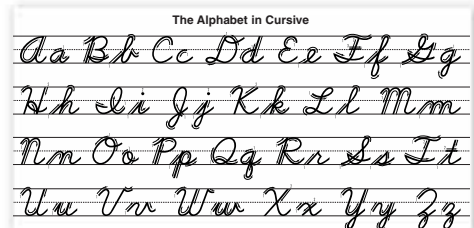 The Alphabet in Cursive
Aa Bb Cc Dd Ee Ff Gg
Hh Ii Jj Kk Ll Mm
Nn Oo Pp Qq Rr Ss Tt
Uu Vv Ww Xx Yy Zz